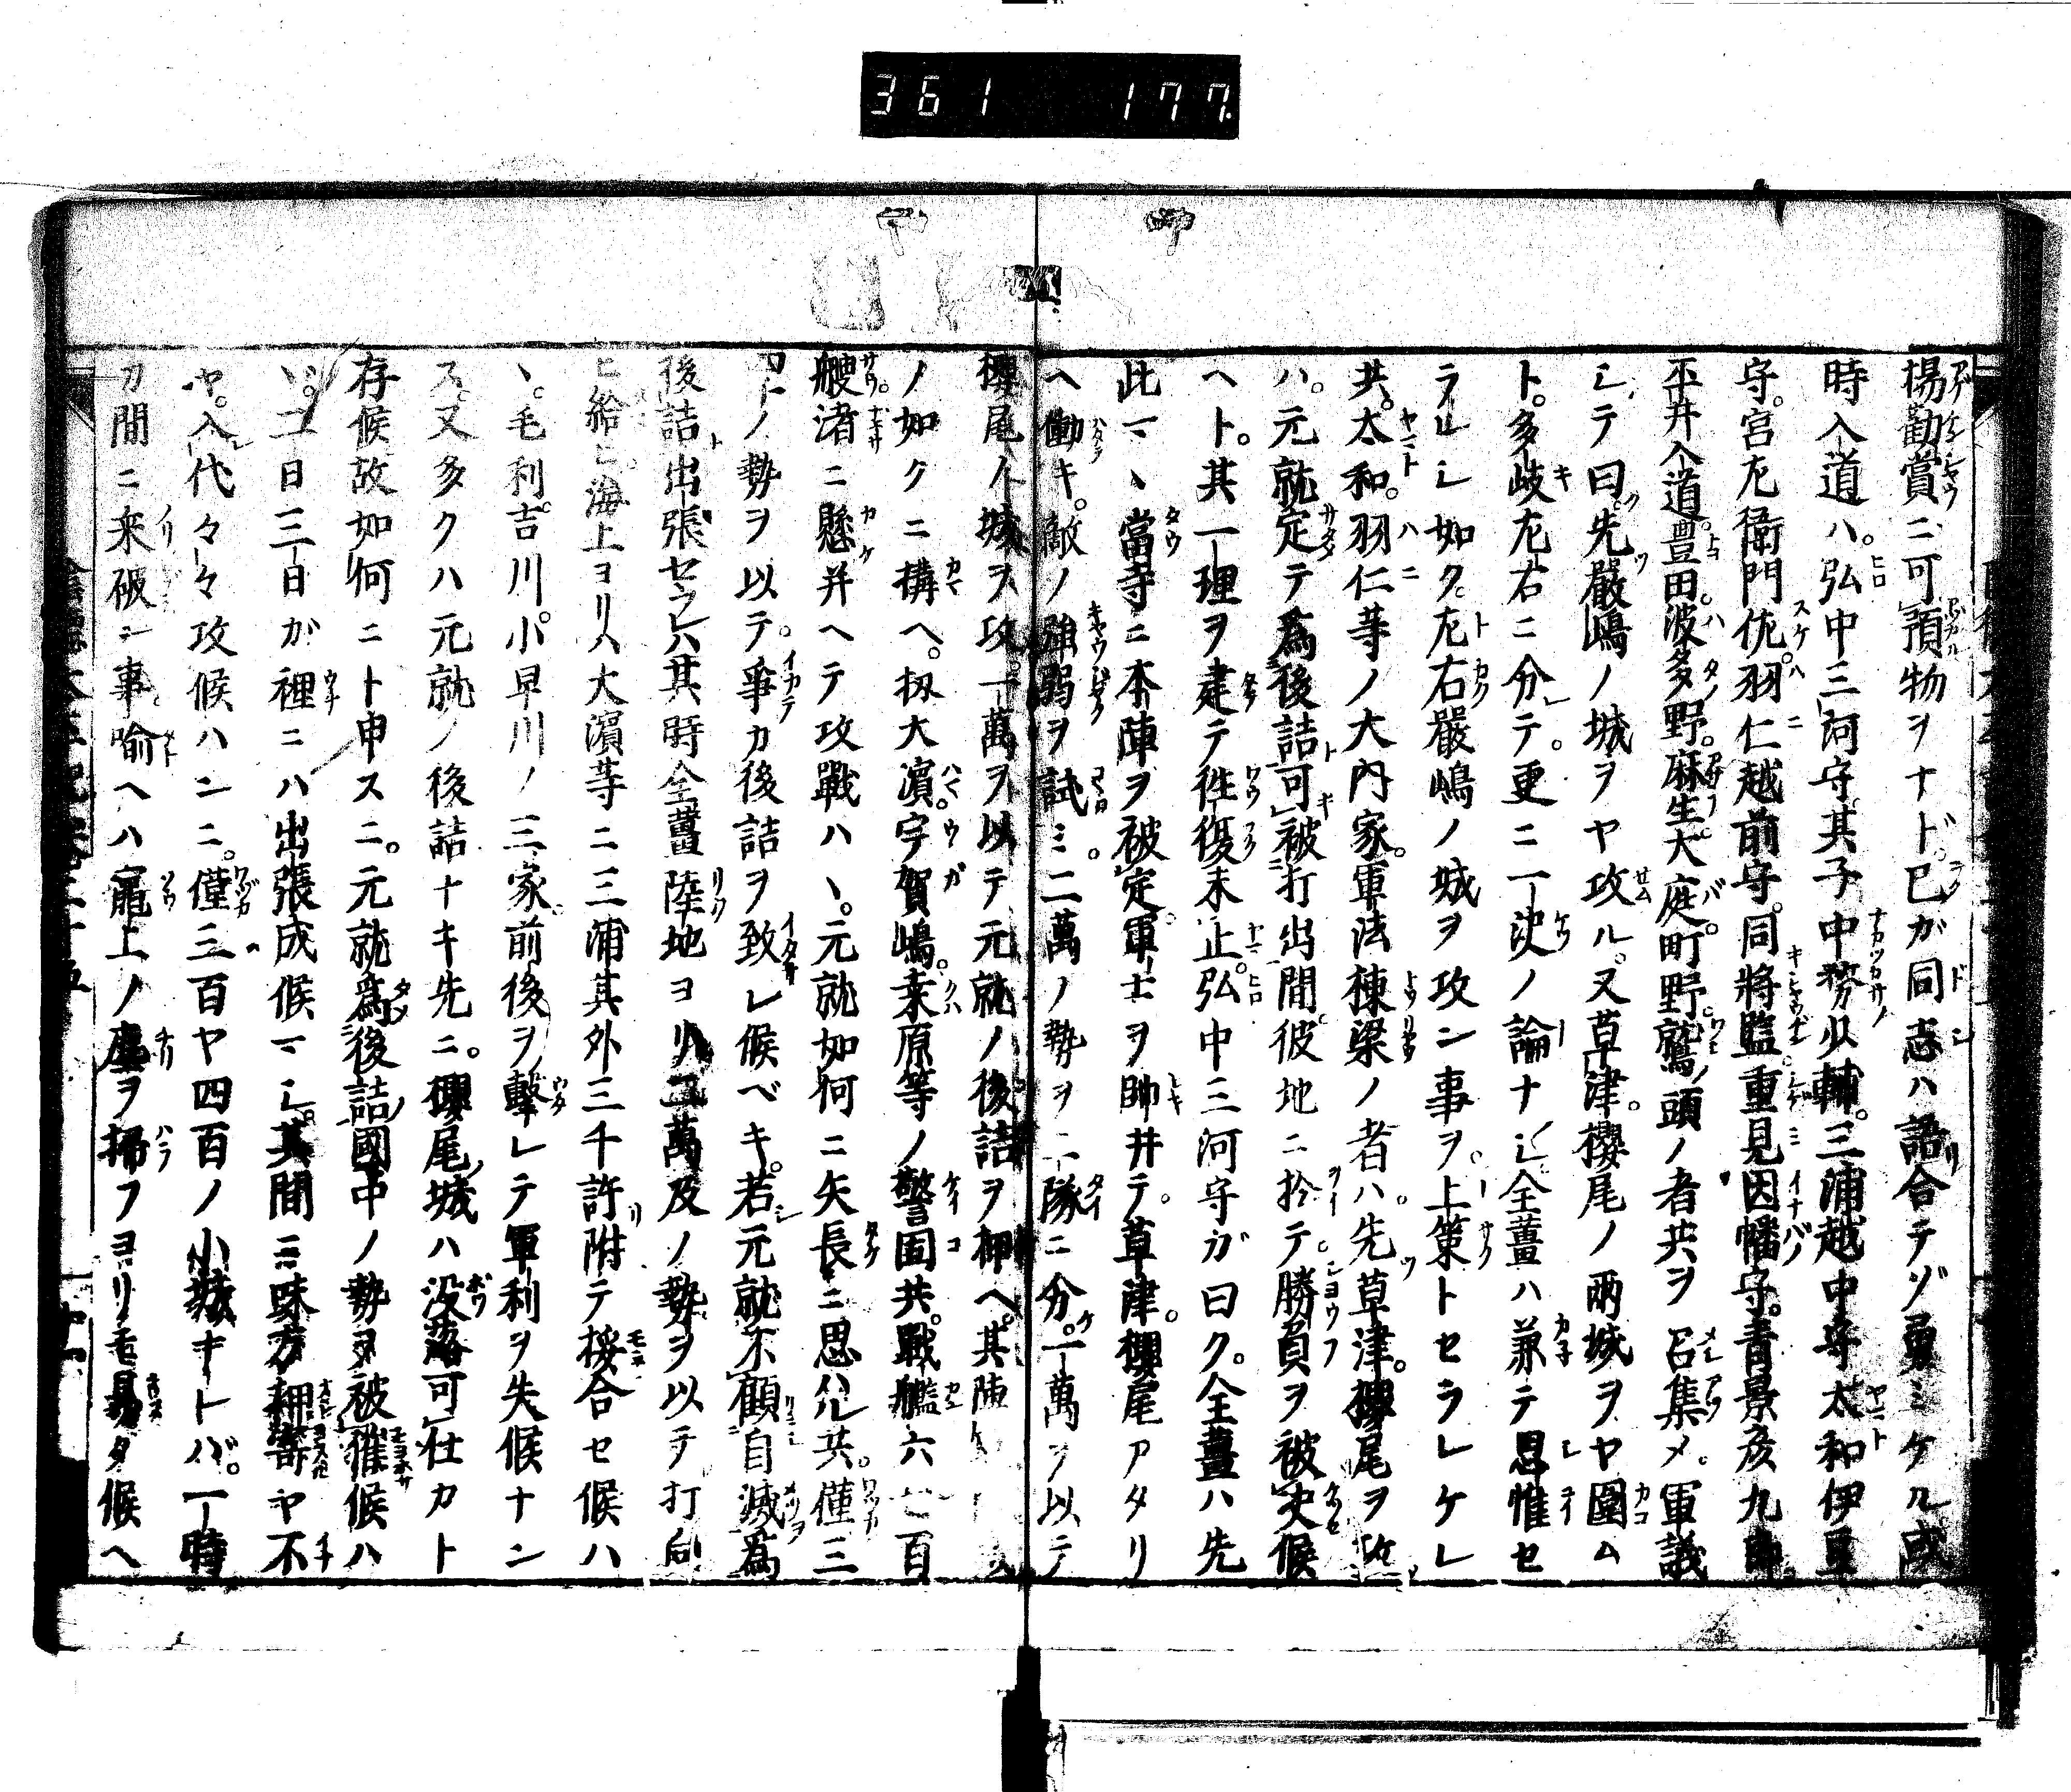 361 177.
揚勸賞ニ可預物ヲナド。己が同志ハ語合テゾ勇ミケル或
時入道ハ。弘中三河守。其子中務少輔。三浦越中守太和伊豆
守。宮左衛門佐。羽仁越前守。同將監重見因幡守。青景彦九郎
平井入道。豊田。波多野。麻生。大庭。町野。鷲頭ノ者共ヲ召集メ。軍議
シテ曰。先嚴嶋ノ城ヲヤ攻ル。又草津。櫻尾ノ兩城ヲヤ圍ム
ト。多岐左右ニ分テ。更ニ一決ノ論ナシ全薑ハ兼テ思惟セ
ラルレ如ク。左右嚴嶋ノ城ヲ攻ン事ヲ。上策トセラレケレ
共。太和。羽仁等ノ大内家。軍法棟梁ノ者ハ。先草津。櫻尾ヲ攻
ハ。元就定テ爲後詰可被打出間。彼地ニ於テ。勝負ヲ被决候
ヘト。其一理ヲ建テ徃復未止。弘中三河守が曰ク。全薑ハ先
此マヽ當寺ニ本陣ヲ被定。軍士ヲ帥井テ。草津。櫻尾アタリ
ヘ働キ。敵ノ強弱ヲ試ミ。二萬ノ勢ヲ二隊ニ分。一萬ヲ以テ
櫻尾ノ城ヲ攻。一萬ヲ以テ元就ノ後詰ヲ抑ヘ。其陣
ノ如クニ構ヘ。扨大濱。宇賀嶋。桒原等ノ警固共。戰艦六七百
艘渚ニ懸并ヘテ攻戰ハヽ。元就如何ニ矢長ニ思ハル共。僅三
四千ノ勢ヲ以テ。爭カ後詰ヲ致レ候ベキ。若元就不顧自滅爲
後詰出張セラレハ其時全薑陸地ヨリ二萬及ノ勢ヲ以テ打向
ヒ給ヒ。海上ヨリハ大濱等ニ三浦其外三千許附テ挼合セ候ハ
ヽ。毛利。吉川。小早川ノ三家。前後ヲ擊レテ軍利ヲ失候ナン
ス。又多クハ元就ノ後詰ナキ先ニ。櫻尾ノ城ハ没落可仕カト
存候故如何ニト申スニ。元就爲後詰國中ノ勢ヲ被催候ハ
ヾ。二日三日が裡ニハ出張成候マシ。其間ニ味方耤寄ヤ不
ヤ。入代々々攻候ハンニ。僅三百ヤ四百ノ小城キトバ。一時
カ間ニ来破ン事。喩ヘハ竈上ノ塵ヲ掃フヨリモ易タ候ヘ